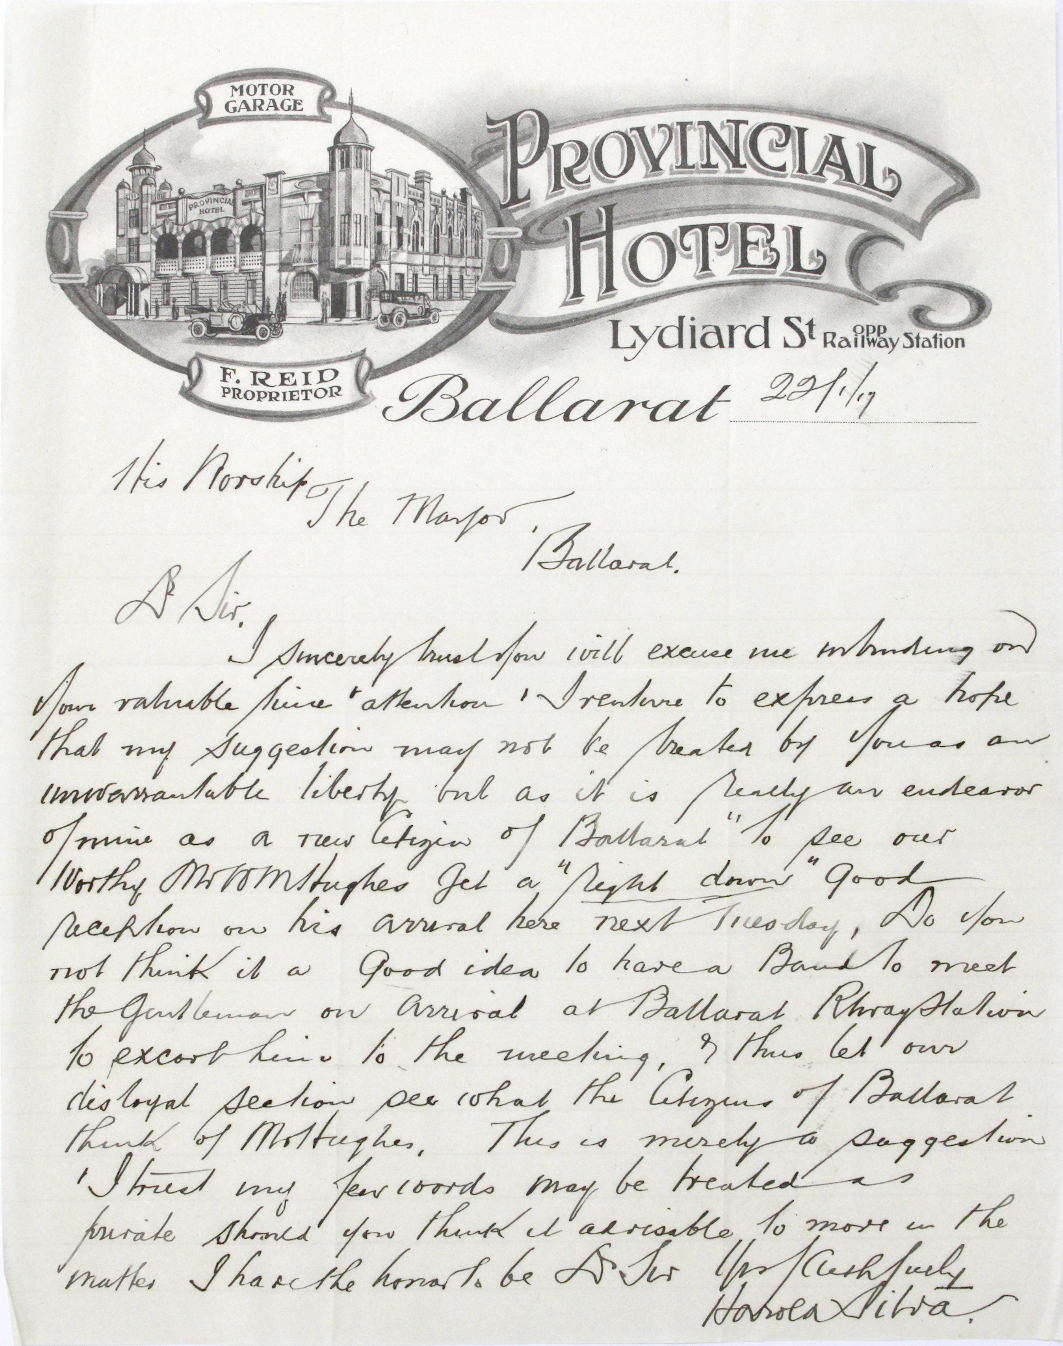 MOTOR
GARAGE
PROVINCIAL
HOTEL
PROVINCIAL
HOTEL
Lydiard St opp Railway Station
F. REID
PROPRIETOR
Ballarat 22/1/17
His Worship
The Mayor,
Ballarat.
Dr Sir,
I sincerely trust you will excuse me intruding on
your valuable time & attention & I venture to express a hope
that my suggestion may not be treated by you as an
unwarrantable liberty but as it is really an endeavor
of mine as a new Citizen of Ballarat" to see our
Worthy Mr W M Hughes get a "right down" Good
reception on his arrival here next Tuesday, Do you
not think it a Good idea to have a Band to meet
the Gentleman on arrival at Ballarat Rlway Station
to excort him to the meeting, & thus let our
disloyal section see what the Citizens of Ballarat
think of Mr Hughes. This is merely a suggestion
& I trust my few words may be treated as
private should you think it advisable to move in the
matter I have the honor to be Dr Sir Yrs faithfully
Harold Silva.